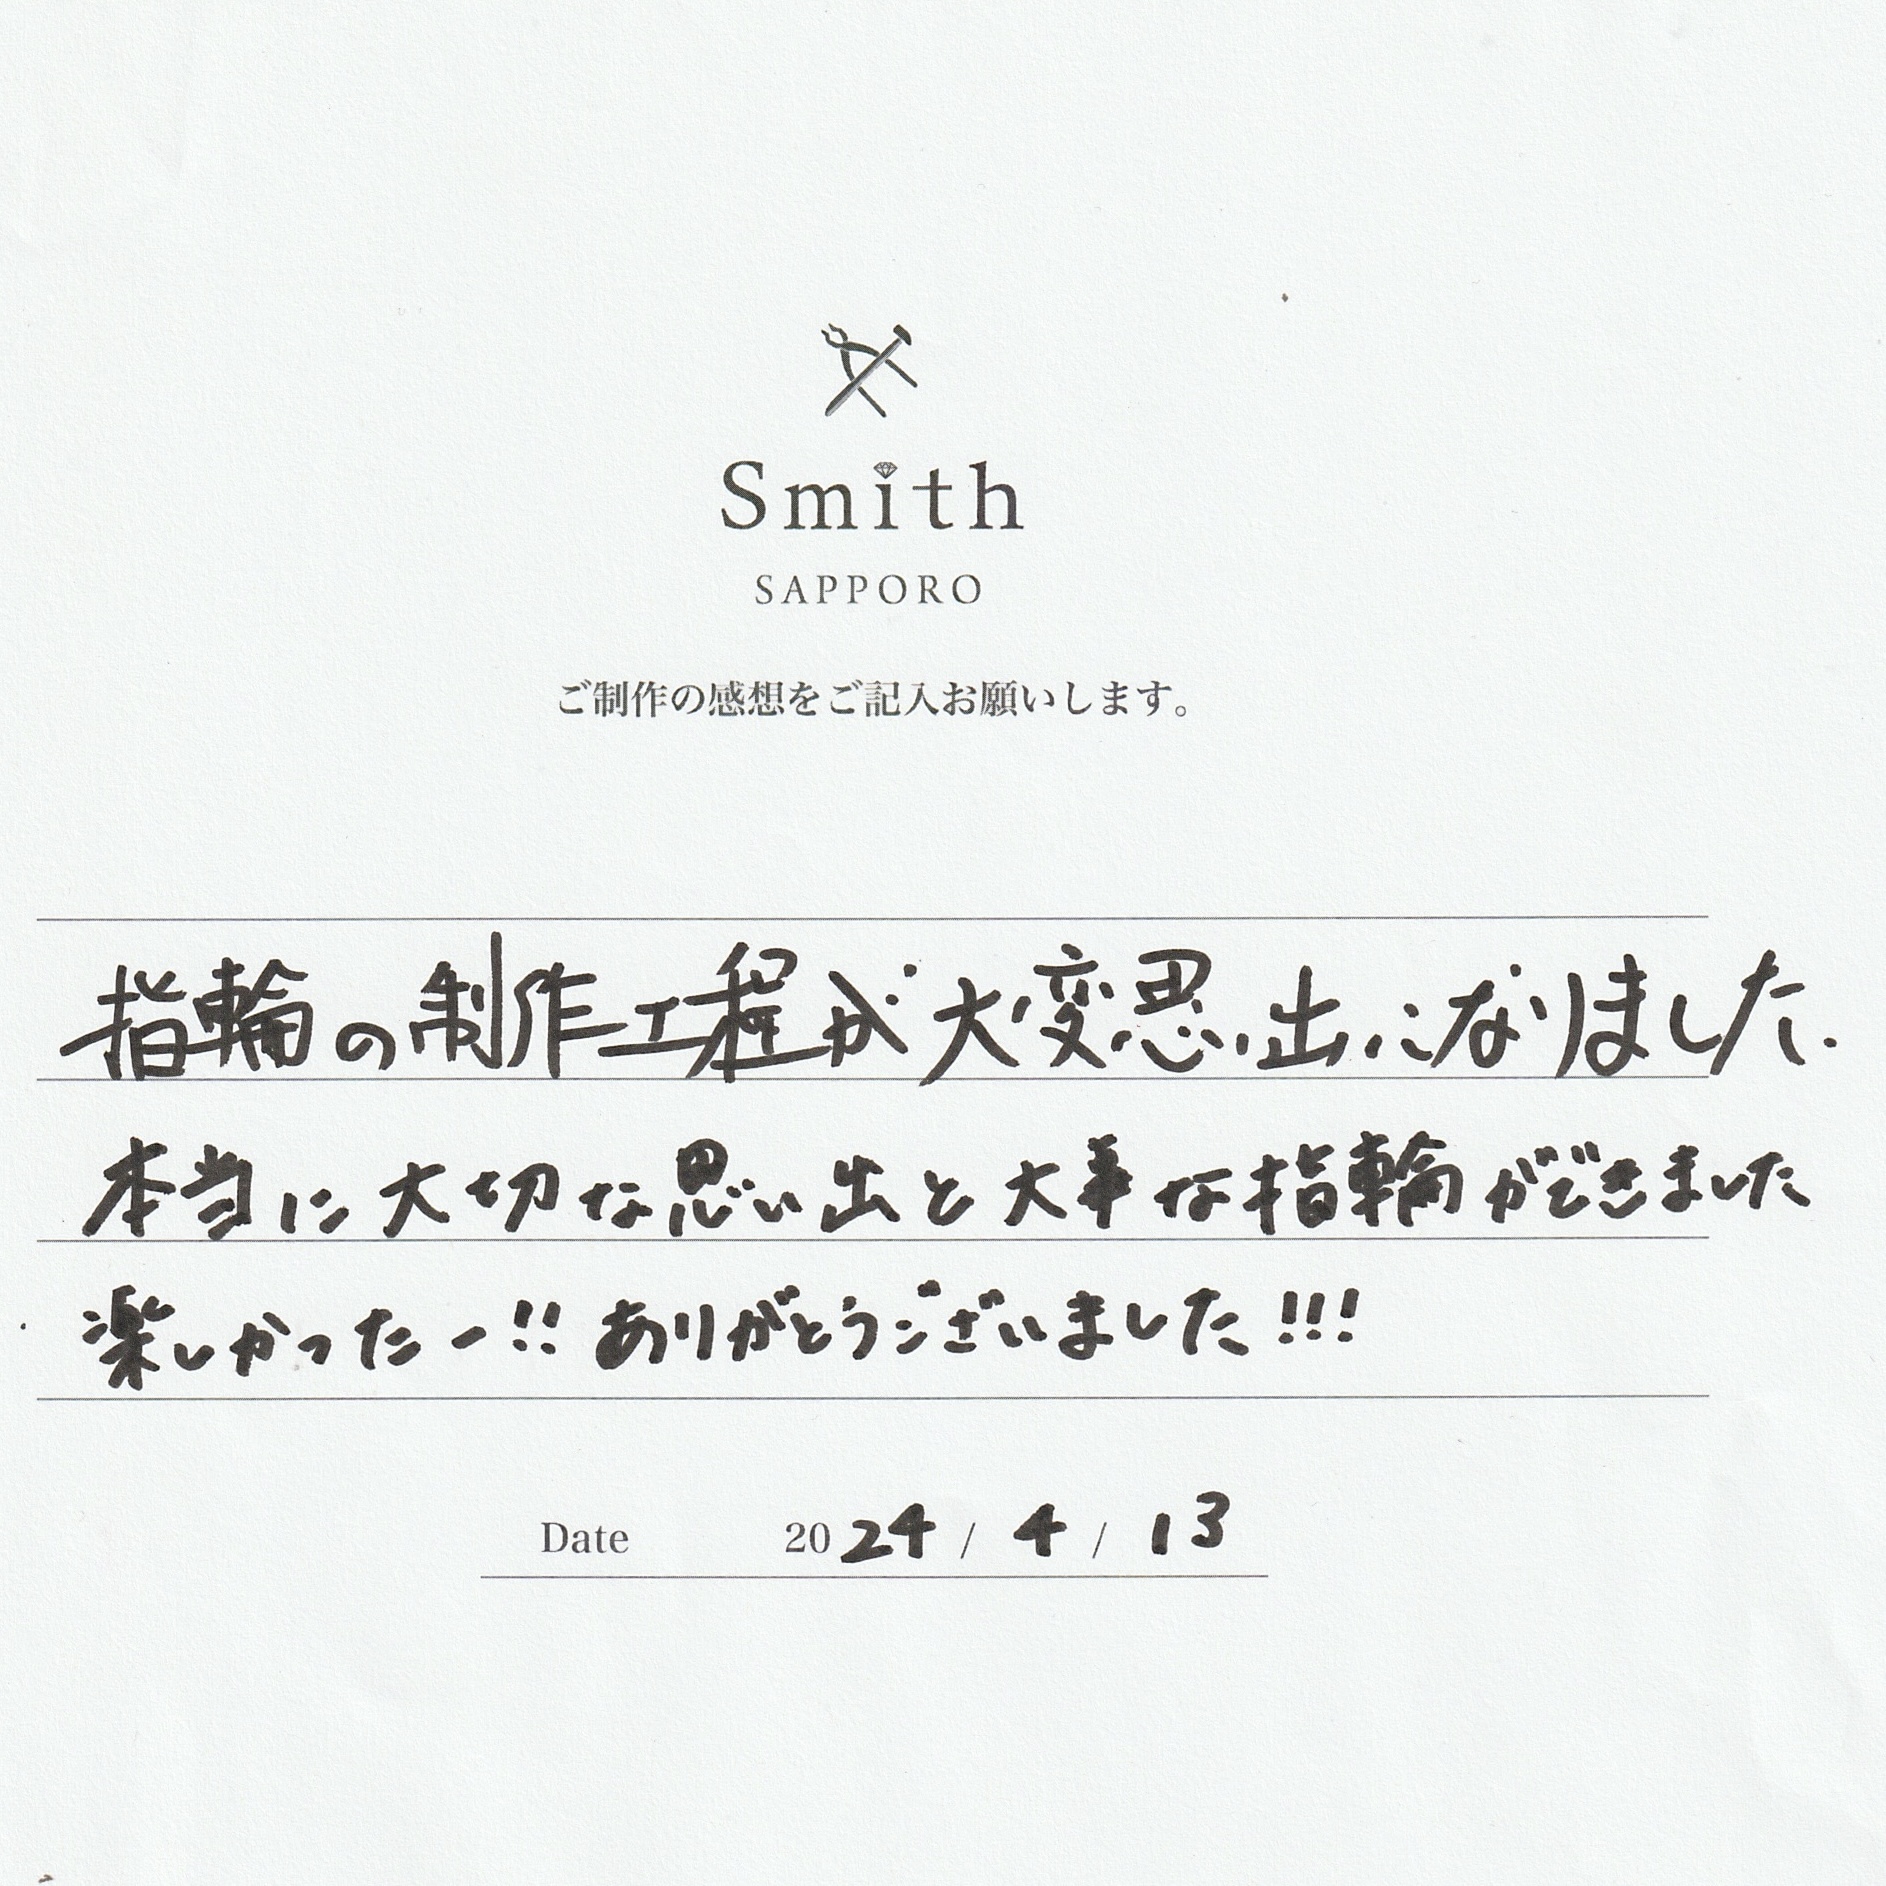 Smith
SAPPORO
ご制作の感想をご記入お願いします。
指輪の制作工程が大変思い出になりました.
本当に大切な思い出と大事な指輪ができました
楽しかったー!! ありがとうございました!!!
Date 2024 / 4 / 13